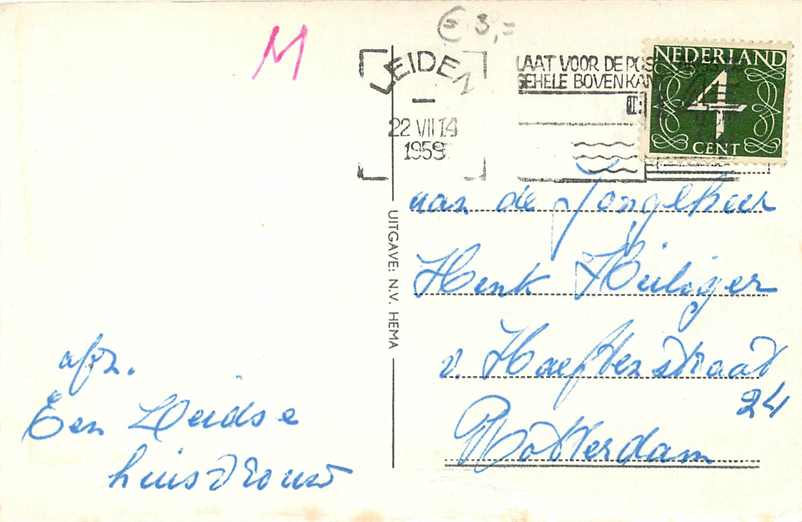 M
= 3,=
LEIDEN
22 VII 14
1959
LAAT VOOR DE POS
GEHELE BOVENKAN
NEDERLAND
4
CENT
aan de Jongeheer
Henk Heiliger
v. Haeftenstraat
24
Rotterdam
UITGAVE: N.V. HEMA
afz.
Een Leidse
huisvrouw